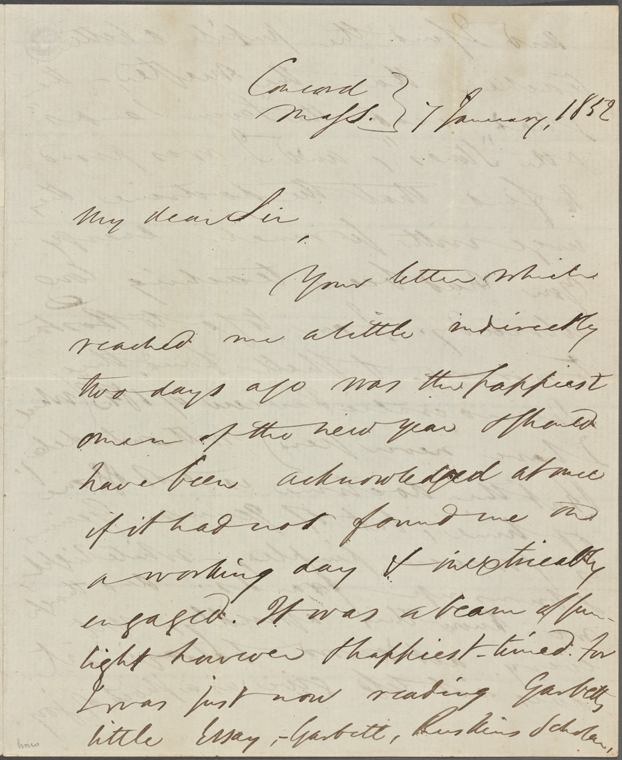 Concord
Mass. } 7 January, 1852
My dear Sir,
Your letter which
reached me a little indirectly
two days ago was the happiest
omen of the new year & should
have been acknowledged at once
if it had not found me on
a working day & inextricably
engaged. It was a beam of sun-
light however & happiest-timed. For
I was just now reading Garbett's
little Essay,-Garbett, Ruskin's Scholar,